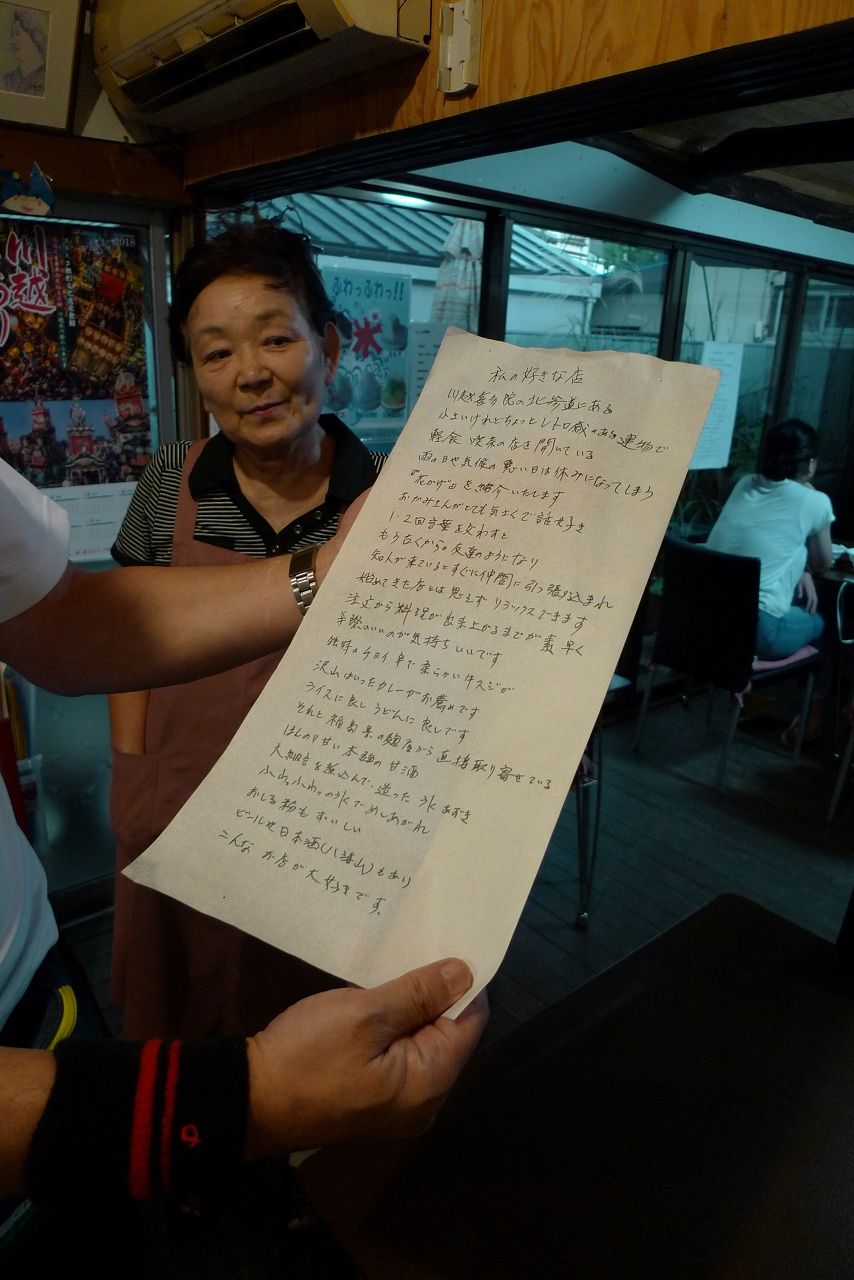 川越
2018
ふわっふわっ!!
氷
私の好きな店
川越喜多院の北参道にある
小さいけれどちょっとレトロ感のある建物で
軽食 喫茶の店を開いている
雨の日や気候の悪い日は休みになってしまう
"花かげ"を紹介いたします
おかみさんがとても気さくで話好き
1・2回言葉を交わすと
もう古くからの友達のようになり
知人が来ているとすぐに仲間に引っ張り込まれ
始めてきた店とは思えず リラックスできます
注文から料理が出来上がるまでが素早く
手際のいいのが気持ちいいです
独特のチョイ辛で柔らかい牛スジが
沢山はいったカレーがお薦めです
ライスに良し うどんに良しです
それと福島県の麹屋から直接取り寄せている
ほんのり甘い本麹の甘酒
大納言を煮込んで、造った氷あずき
ふわっふわっの氷でめしあがれ
おしる粉もおいしい
ビールや日本酒(八海山)もあり
こんな お店が大好きです。